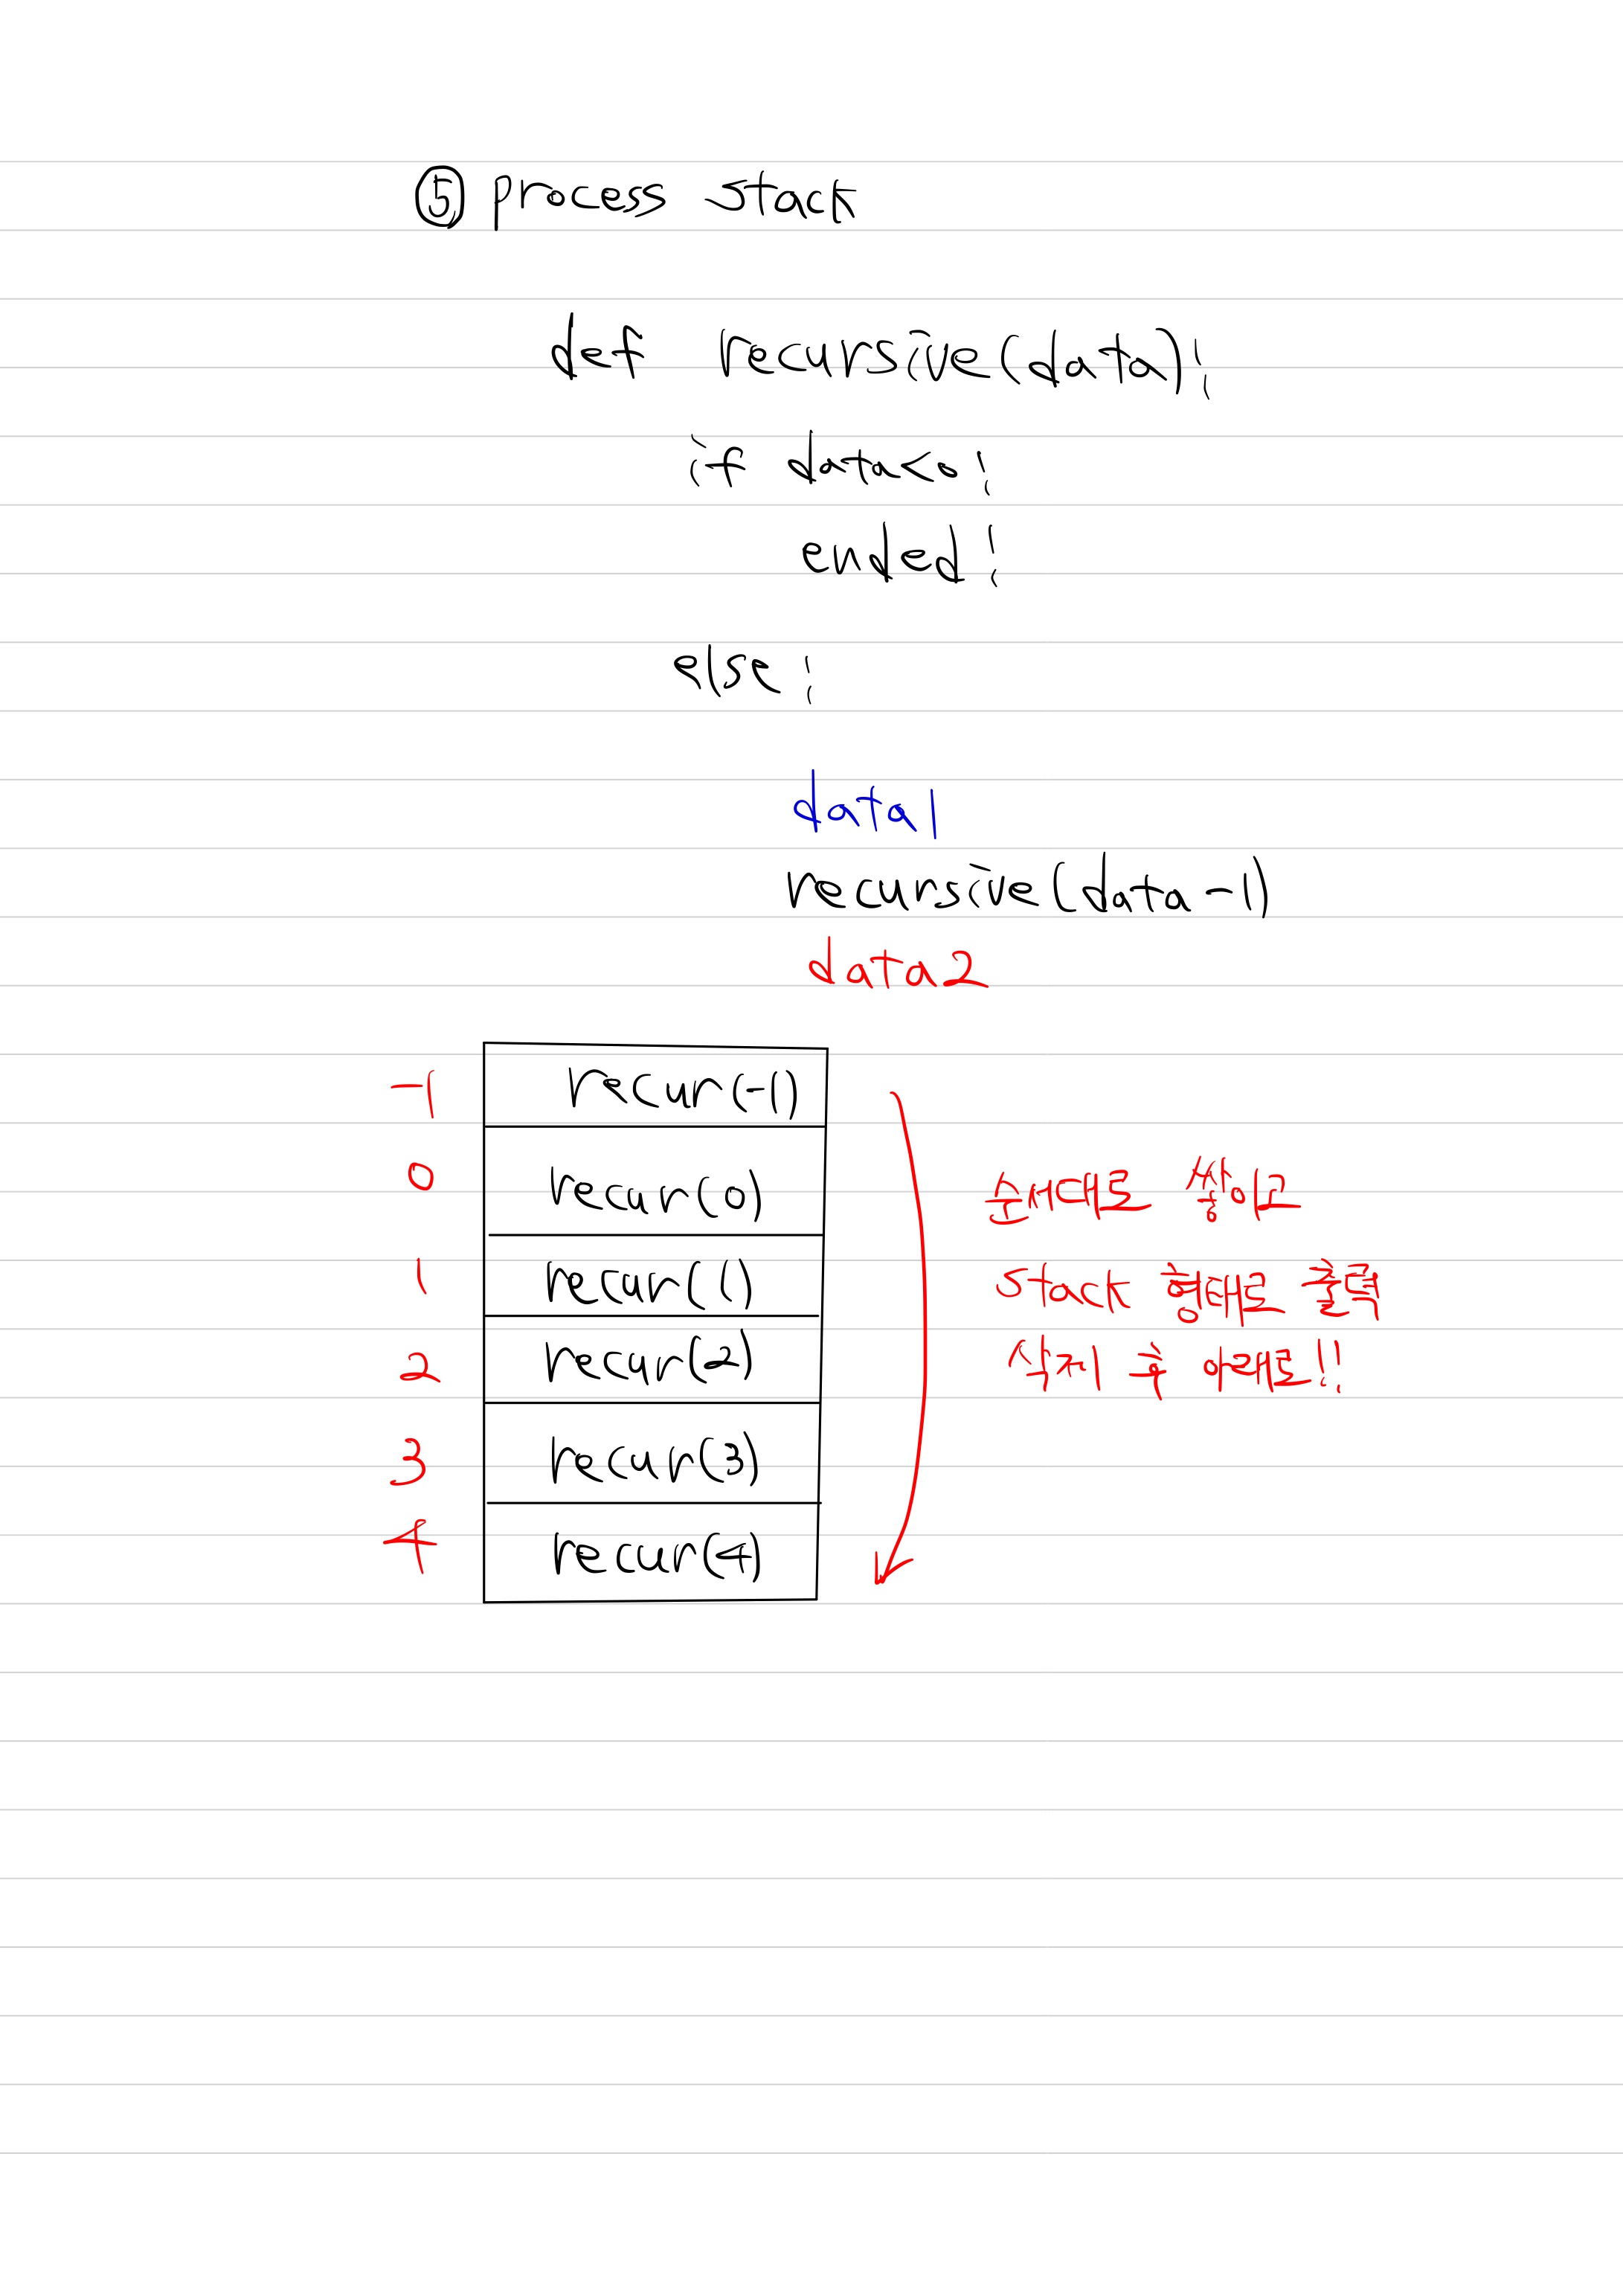 ⑤ process stack
def recursive(data):
if data<0:
ended!
else:
data1
recursive(data-1)
data2
-1 recur(-1)
0 recur(0)
1 recur(1)
2 recur(2)
3 recur(3)
4 recur(4)
순서대로 쌓이고
stack 형태로 출력
삭제 후 아래로!!